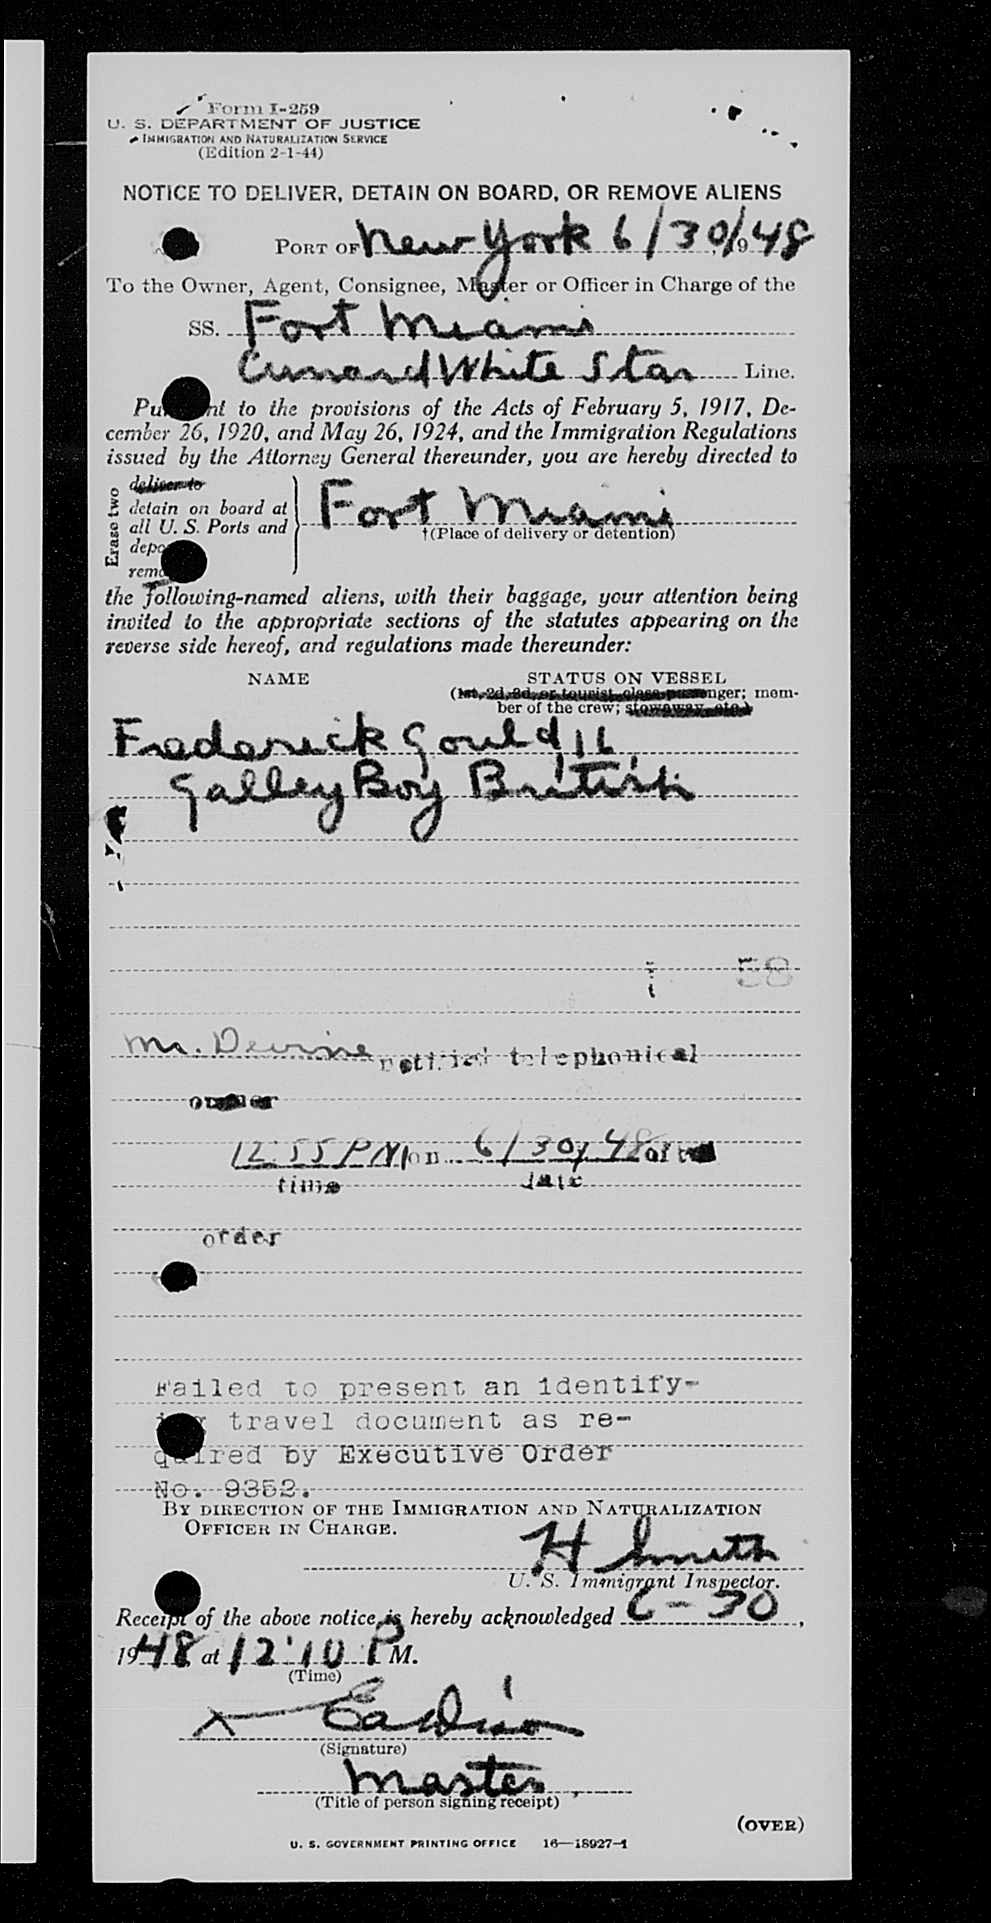 Form I-259
U. S. DEPARTMENT OF JUSTICE
IMMIGRATION AND NATURALIZATION SERVICE
(Edition 2-1-44)
NOTICE TO DELIVER, DETAIN ON BOARD, OR REMOVE ALIENS
PORT OF New York 6/30/1948
To the Owner, Agent, Consignee, Master or Officer in Charge of the
SS. Fort Miami
Cunard White Star Line.
Pu nt to the provisions of the Acts of February 5, 1917, De-
cember 26, 1920, and May 26, 1924, and the Immigration Regulations
issued by the Attorney General thereunder, you are hereby directed to
Erase two
deliver to
detain on board at
all U. S. Ports and
depo
remo
Fort Miami
†(Place of delivery or detention)
the following-named aliens, with their baggage, your attention being
invited to the appropriate sections of the statutes appearing on the
reverse side hereof, and regulations made thereunder:
NAME STATUS ON VESSEL
(1st, 2d, 3d, or tourist class passenger; mem-
ber of the crew; stowaway, etc.)
Frederick Gould 16
Galley Boy British
58
Mr. Devine notified telephonical
order
12:55 PM on 6/30/48 of
time date
order
Failed to present an identify-
travel document as re-
quired by Executive Order
No. 9352.
BY DIRECTION OF THE IMMIGRATION AND NATURALIZATION
OFFICER IN CHARGE.
H Smith
U. S. Immigrant Inspector.
Receipt of the above notice is hereby acknowledged 6-30,
1948 at 12:10 P M.
X
(Signature)
Master
(Title of person signing receipt)
(OVER)
U. S. GOVERNMENT PRINTING OFFICE 16—18927-1